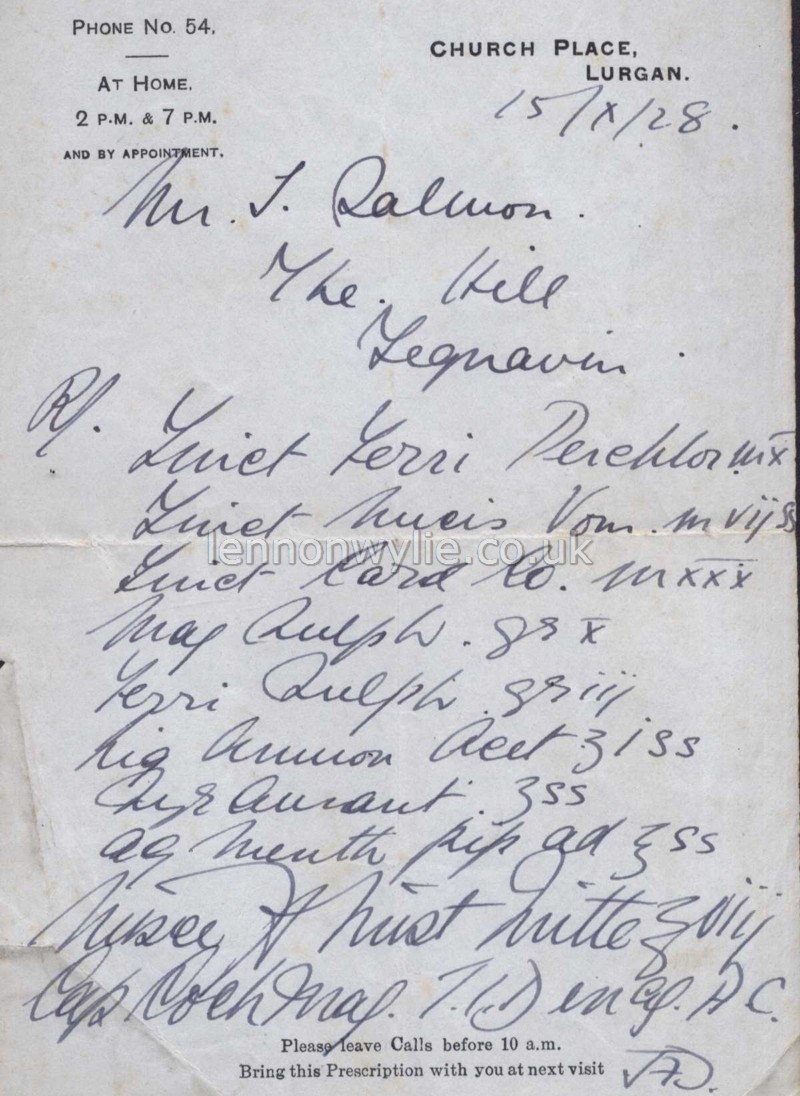 PHONE No. 54.
AT HOME.
2 P.M. & 7 P.M.
AND BY APPOINTMENT.
CHURCH PLACE,
LURGAN.
15/X/28.
Mr. J. Salmon.
The Hill
Legnavin.
R/.
Tinct Ferri Perchlor m x
Tinct Nucis Vom. m vijss
Tinct Card Co. m xxx
Mag Sulph. grs x
Ferri Sulph grs iij
Liq Ammon Acet ʒiss
Syr Aurant. ʒss
Aq Menth Pip ad ℥ss
lennonwylie.co.uk
Misce Ft Mist Mitte ℥viij
Cap. Coch Mag. T.D. ex aq. A C.
Please leave Calls before 10 a.m.
Bring this Prescription with you at next visit